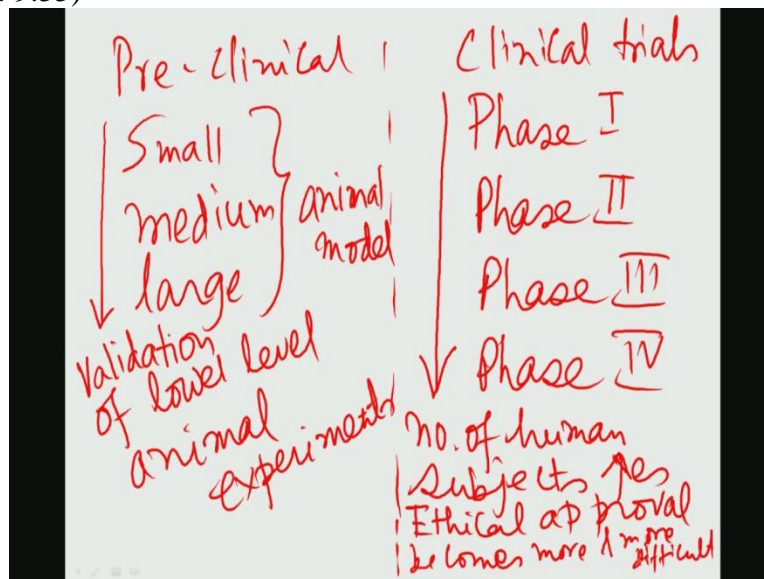 9:55)
Pre-clinical
Small
medium
large
animal
model
Validation
of lower level
animal
experiments
Clinical trials
Phase I
Phase II
Phase III
Phase IV
no. of human
subjects ↑es
Ethical approval
becomes more & more
difficult